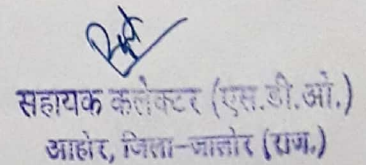 सहायक कलेक्टर (एस.डी.ओ.)
आहोर, जिला-जालोर (राज.)